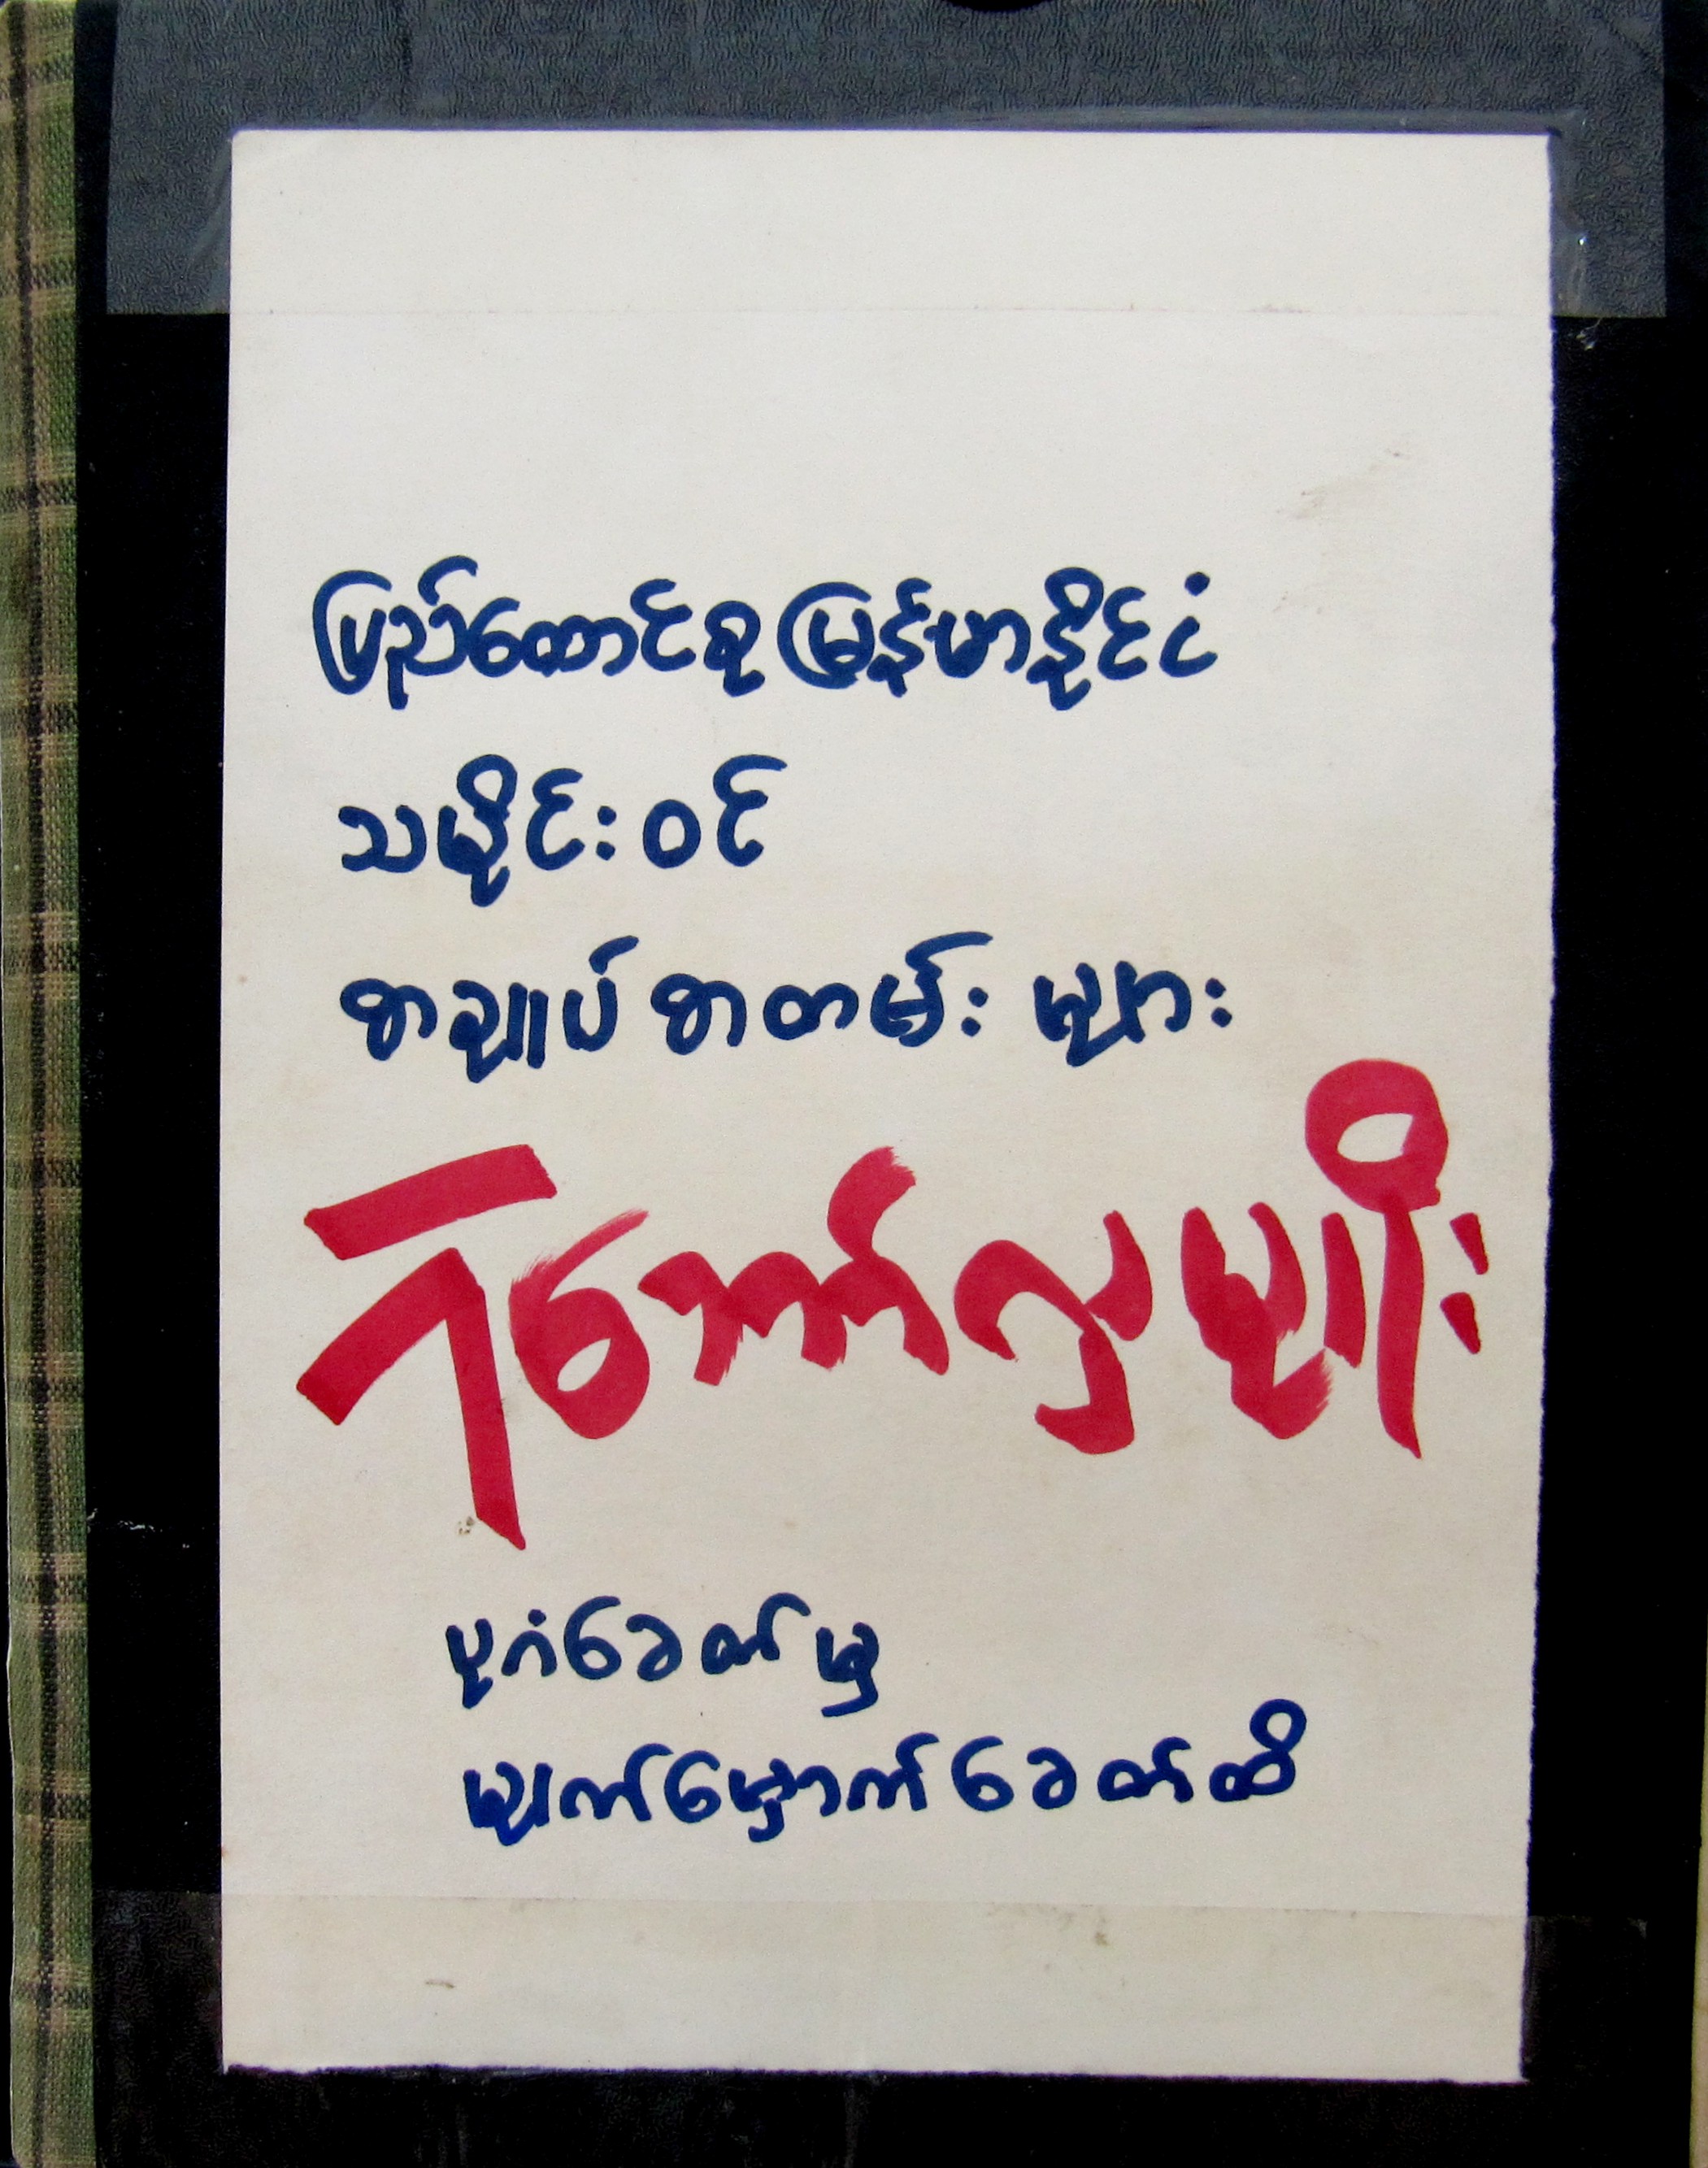 ပြည်ထောင်စုမြန်မာနိုင်ငံ
သမိုင်းဝင်
စာချုပ်စာတမ်းများ
ဒဂုန်
ပုဂံခေတ်မှ
မျက်မှောက်ခေတ်ထိ